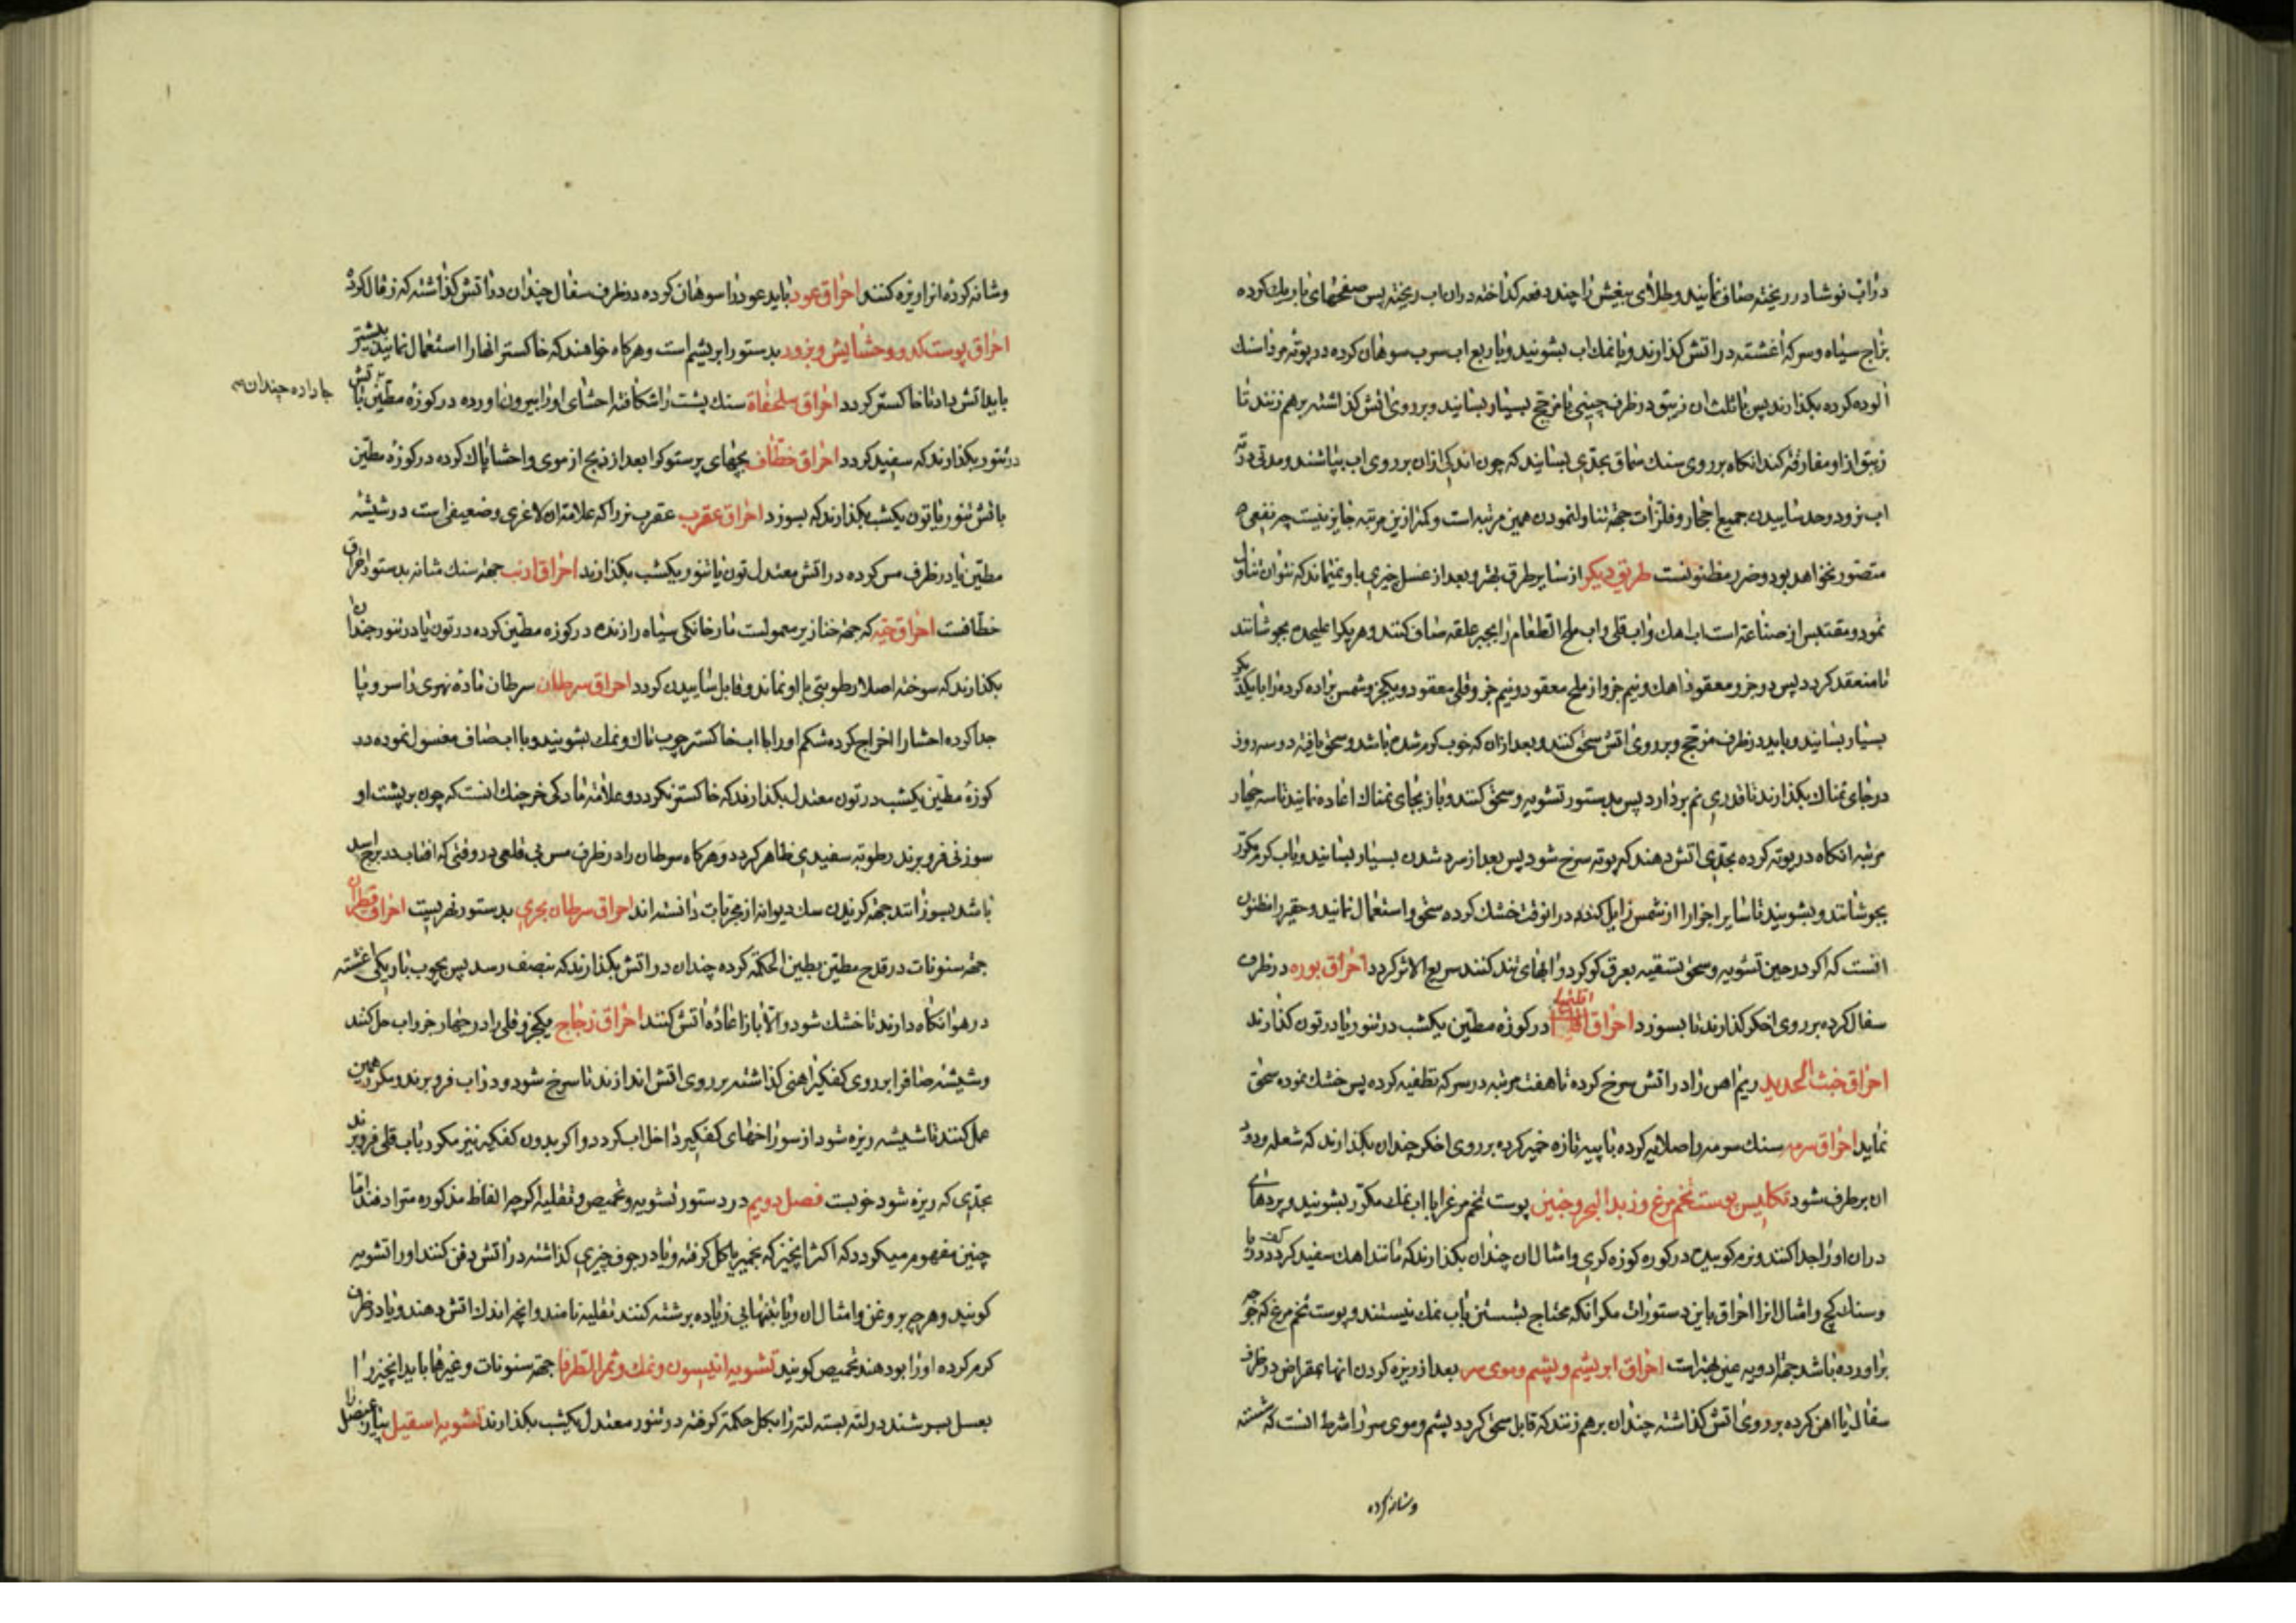 دراب نوشادر ریخته صاف نمایند و طلای بیغش را چند دفعه کداخته دران اب ریخته پس صفحهای باریک کرده
بزاج سیاه و سرکه اغشته در اتش کذارند و با نمک اب بشویند و با ربع اب سرب سوهان کرده در بوته مرداسنک
الوده کرده بکذارند پس با ثلث ان زیبق در ظرف چینی یا مزجج بسیار بسایند و بر روی اتش کذاشته برهم زنند تا
زیبق ازو مفارقت کند انکاه بر روی سنک سماق بجدی بسایند که چون اندکی ازان بر روی اب بپاشند و مدتی در ته
اب نرود و حد ساییدن جمیع احجار و فلزات جهة تناول نمودن همین مرتبه است و کمتر ازین مرتبه جایز نیست چه نفعی
متصور نخواهد بود و ضرر مظنونست طریق دیکر از سایر طرق بهتر و بعد از غسل چیزی باو نمیماند که نتوان تناول
نمود و مقتبس از صناعة است اب اهک و اب قلی و اب ملح الطعام را بجبر علقه صاف کنند و هریک را علیحده بجوشانند
تا منعقد کردد پس دو جزو معقود اهک و نیم جزو از ملح معقود و نیم جزو قلی معقود و یکجزو شمس براده کرده را با یکدیکر
بسیار بسایند و باید در ظرف مزجج و بر روی اتش سحق کنند و بعد ازان که خوب کرم شده باشد و سحق یافته دو سه روز
در جای نمناک بکذارند تا قدری نم بردارد پس بدستور تشویه و سحق کنند و باز بجای نمناک اعاده نمایند تا سه چهار
مرتبه انکاه در بوته کرده بجدی اتش دهند که بوته سرخ شود پس بعد از سرد شدن بسیار بسایند و باب کرم مکرر
بجوشانند و بشویند تا سایر اجزا را از شمس زایل کند و در انوقت خشک کرده سحق و استعمال نمایند و حقیر را مظنون
انست که اکر در حین تشویه و سحق تسقیه بعرق کوکرد و ابهای تند کنند سریع الاثر کردد احراق بوره در ظرف
سفال کرده بر روی اخکر کذارند تا بسوزد احراق اقلیمیا در کوزه مطین یکشب در تنور یا در تون کذارند
احراق خبث الحدید ریم اهن را در اتش سرخ کرده تا هفت مرتبه در سرکه تطفیه کرده پس خشک نموده سحق
نماید احراق سرمه سنک سرمه را صلایه کرده با پیه تازه خمیر کرده بر روی اخکر چندان بکذارند که شعله و دود
ان برطرف شود تکلیس پوست تخم مرغ و زبد البحر و جنین پوست تخم مرغ را با اب نمک مکرر بشویند و پردهای
دران او را جدا کنند و نرم کوبیده در کوره کوزه کری و امثال ان چندان بکذارند که مانند اهک سفید کردد
وسنک کچ و امثال انرا احراق باین دستورات مکر انکه محتاج بشستن باب نمک نیستند و پوست تخم مرغ که جوجه
براورده باشد جهة ادویه عین بهتر است احراق ابریشم و پشم و موی سر بعد از ریزه کردن انها بمقراض در ظرف
سفال یا اهن کرده بر روی اتش کذاشته چندان برهم زنند که قابل سحق کردد پشم و موی سر را شرط انست که شسته
وشانه کرده
وشانه کرده انرا ریزه کنند احراق عود باید عود را سوهان کرده در ظرف سفال چندان در اتش کذاشته که زغال کردد
احراق پوست کدو و حشایش و بزور بدستور ابریشم است و هرکاه خواهند که خاکستر انها را استعمال نمایند بیشتر
باید اتش داد تا خاکستر کردد احراق سلحفاة سنک پشت را شکافته احشای او را بیرون اورده در کوزه مطین با اتش
جا داده چندان
در تنور بکذارند که سفید کردد احراق خطاف بچهای پرستوک را بعد از ذبح از موی و احشا پاک کرده در کوزه مطین
باتش تنور یا تون یکشب بکذارند که بسوزد احراق عقرب عقرب نر را که علامة ان لاغری و ضعیفی است در شیشه
مطین یا در ظرف مس کرده در اتش معتدل تون یا تنور یکشب بکذارند احراق ارنب جهة سنک مثانه بدستور احراق
خطافست احراق حیه که جهة خنازیر معمولست مار خانکی سیاه را زنده در کوزه مطین کرده در تون یا در تنور چندان
بکذارند که سوخته اصلا رطوبتی باو نماند و قابل ساییدن کردد احراق سرطان سرطان ماده نهری را سر و پا
جدا کرده احشا را اخراج کرده شکم او را با اب خاکستر چوب تاک و نمک بشویند و با اب صاف مغسول نموده در
کوزه مطین یکشب در تون معتدل بکذارند که خاکستر نکردد و علامة مادکی خرچنک انست که چون بر پشت او
سوزنی فرو برند رطوبه سفیدی ظاهر کردد و هرکاه سرطان را در ظرف مس بی قلعی در وقتی که افتاب در برج اسد
باشد بسوزانند جهة کزیدن سک دیوانه از مجربات دانسته اند احراق سرطان بحری بدستور نهریست احراق قطران
جهة سنونات در قدح مطین بطین الحکمة کرده چندان در اتش بکذارند که بنصف رسد پس بچوب باریکی اغشته
در هوا نکاه دارند تا خشک شود و الا باز اعاده اتش کنند احراق زجاج یکجزو قلی را در چهار جزو اب حل کنند
وشیشه صاف را بر روی کفکیر اهنی کذاشته بر روی اتش اندازند تا سرخ شود و در اب فرو برند و مکرر همین
عمل کنند تا شیشه ریزه شود از سوراخهای کفکیر داخل اب کردد و اکر بدون کفکیر نیز مکرر باب قلی فرو برند
بجدی که ریزه شود خوبست فصل دویم در دستور تشویه و تحمیص و تقلیه اکرچه الفاظ مذکوره مترادفند اما
چنین مفهوم میکردد که اکثر انچیز که بخمیر یا کل کرفته و یا در جوف چیزی کذاشته در اتش دفن کنند او را تشویه
کویند و هرچه بروغن و امثال ان و یا بتنهایی زیاده برشته کنند تقلیه نامند و انچه اندک اتش دهند و یا در ظرف
کرم کرده او را بو دهند تحمیص کویند تشویه انیسون و نمک و ثمر الطرفا جهة سنونات و غیرها باید انچیز را
بعسل بسرشند در لته بسته لته را بکل حکمة کرفته در تنور معتدل یکشب بکذارند تشویه اسقیل پیاز عنصل را